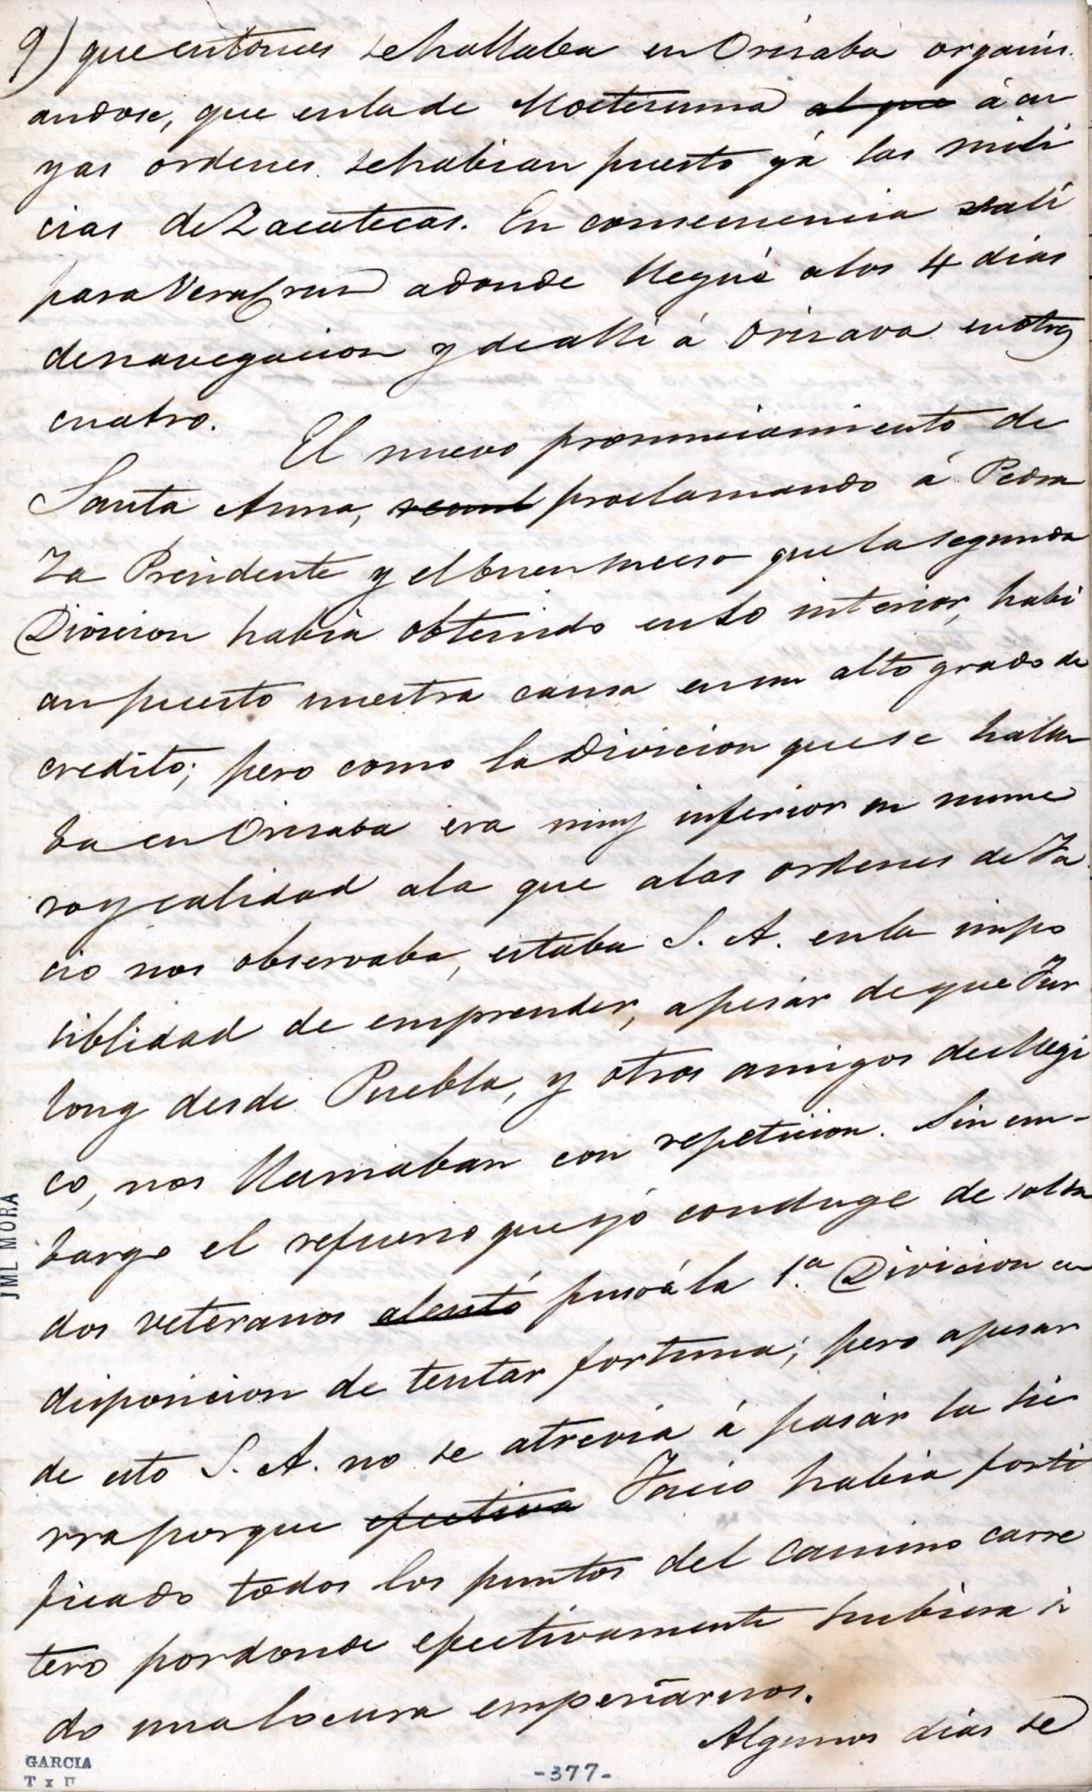 9) que entonces se hallaba en Orisaba organis
andose, que en la de Moctesuma ~~al que~~ á cu
yas ordenes se habian puesto yá las mili
cias de Zacatecas. En consecuencia salí
para VeraCruz adonde llegué a los 4 dias
de navegacion y de alli á Orisava en otros
cuatro.
El nuevo pronunciamiento de
Santa Anna, proclamando á Pedra
za Presidente y el buen suceso que la segunda
Division habia obtenido en lo interior, habi
an puesto nuestra causa en un alto grado de
credito; pero como la Division que se halla
ba en Orisaba era muy inferior en nume
ro y calidad a la que a las ordenes de Fa
cio nos observaba, estaba S. A. en la impo
siblidad de emprender, apesár de que Fur
long desde Puebla, y otros amigos de Megi
co, nos llamaban con repeticion. Sin em-
bargo el refuerso que yó conduge de solda
dos veteranos ~~alentó~~ puso á la 1.ª Division en
disposicion de tentar fortuna; pero apesar
de esto S. A. no se atrevia á pasár la sie
rra porque ~~efectiva~~ Facio habia forti
ficado todos los puntos del camino carre
tero por donde efectivamente hubiera si
do una locura empeñarnos.
Algunos dias se
JML MORA
GARCIA
-377-